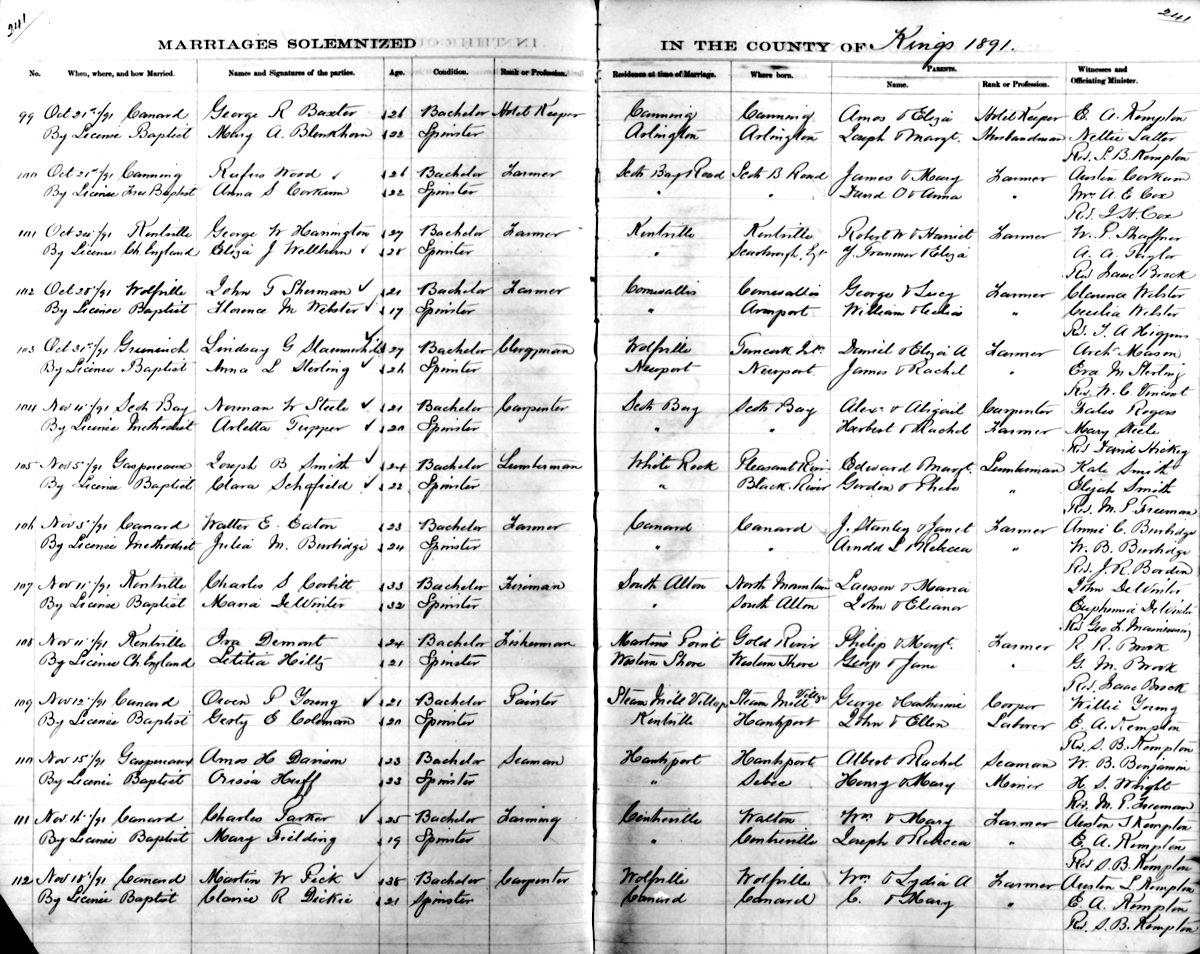 241
241
MARRIAGES SOLEMNIZED IN THE COUNTY OF Kings 1891.
No. When, where, and how Married. Names and Signatures of the parties. Age. Condition. Rank or Profession. Residence at time of Marriage. Where born. PARENTS. Name. Rank or Profession. Witnesses and Officiating Minister.
99 Oct 21st/91 Canard George R Baxter 26 Bachelor Hotel Keeper Canning Canning Amos & Eliza Hotel Keeper E. A. Kempton
By License Baptist Mary A. Blenkhorn 22 Spinster Arlington Arlington Joseph & Margt. Husbandman Nellie
Rev. S. B. Kempton
100 Oct 21st/91 Canning Rufus Wood 26 Bachelor Farmer Scots Bay Road Scots B Road James & Mary Farmer Austen Corkum
By License Free Baptist Anna S Corkum 22 Spinster " " David O & Anna Mrs A. E. Cox
Rev. J. H. Cox
101 Oct /91 Kentville George W Harrington 27 Bachelor Farmer Kentville Kentville Robert W & Harriet Farmer W. P. Shaffner
By License Ch. England Eliza J Wellburn 28 Spinster " Scarborough, & Eliza A. A. Taylor
Rev. Isaac Brock
102 Oct 28/91 Wolfville John T Sherman 21 Bachelor Farmer Cornwallis Cornwallis George & Lucy Farmer Clarence Webster
By License Baptist Florence M Webster 17 Spinster " William & " Cecilia Webster
Rev. T. A Higgins
103 Oct 31st/91 Greenwich Lindsay G 27 Bachelor Clergyman Wolfville Daniel & Eliza A Farmer Mason
By License Baptist Anna L Sterling 26 Spinster Newport Newport James & Rachel " Eva M Sterling
Rev. W. C. Vincent
104 Nov 4/91 Scots Bay Norman W Steele 21 Bachelor Carpenter Scots Bay Scots Bay Alex. & Abigail Carpenter Rogers
By License Methodist Arletta Tupper 20 Spinster " " Herbert & Rachel Farmer Mary Steele
Rev David Hickey
105 Nov 5/91 Gaspereaux Joseph B Smith 24 Bachelor Lumberman White Rock Pleasant River Edward & Margt. Lumberman Kate Smith
By License Baptist Clara Schofield 22 Spinster " Black River Gordon & Phebe " Elijah Smith
Rev. M. P. Freeman
106 Nov 5/91 Canard Walter E. Eaton 23 Bachelor Farmer Canard Canard J. Stanley & Janet Farmer Annie C. Burbidge
By License Methodist Julia M. Burbidge 24 Spinster " " Arnold S & Rebecca " W. B. Burbidge
Rev. J. R. Borden
107 Nov 11/91 Kentville Charles S Corbitt 33 Bachelor Fireman South Alton North Mountain Lawson & Maria John DeWinter
By License Baptist Maria DeWinter 32 Spinster " South Alton John & Eleanor Euphemia DeWinter
Rev Geo.
108 Nov 11/91 Kentville Ira Demont 24 Bachelor Fisherman Martins Point Gold River Philip & Margt. Farmer R. R. Brock
By License Ch. England Letitia Hiltz 21 Spinster Western Shore Western Shore George & Jane " G. M. Brock
Rev. Isaac Brock
109 Nov 12/91 Canard Owen P Young 21 Bachelor Painter Steam Mill Village Steam Mill Village George & Catherine Cooper Willie Young
By License Baptist Gerty E Coleman 20 Spinster Kentville Hantsport John & Ellen Laborer E. A. Kempton
Rev. S. B. Kempton
110 Nov 15/91 Gaspereaux Amos H Davison 23 Bachelor Seaman Hantsport Hantsport Albert & Rachel Seaman W. B. Benjamin
By License Baptist Orissa Huff 23 Spinster " Henry & Mary Miner H. S. Wright
Rev. M. P. Freeman
111 Nov 16/91 Canard Charles Parker 25 Bachelor Farming Centreville Walton Wm & Mary Farmer Austen S Kempton
By License Baptist Mary Fielding 19 Spinster " Centreville Joseph & Rebecca " E. A. Kempton
Rev S. B. Kempton
112 Nov 18/91 Canard Martin W Pick 38 Bachelor Carpenter Wolfville Wolfville Wm & Lydia A Farmer Austen S Kempton
By License Baptist Clarice R Dickie 21 Spinster Canard Canard C. & Mary " E. A. Kempton
Rev. S. B. Kempton